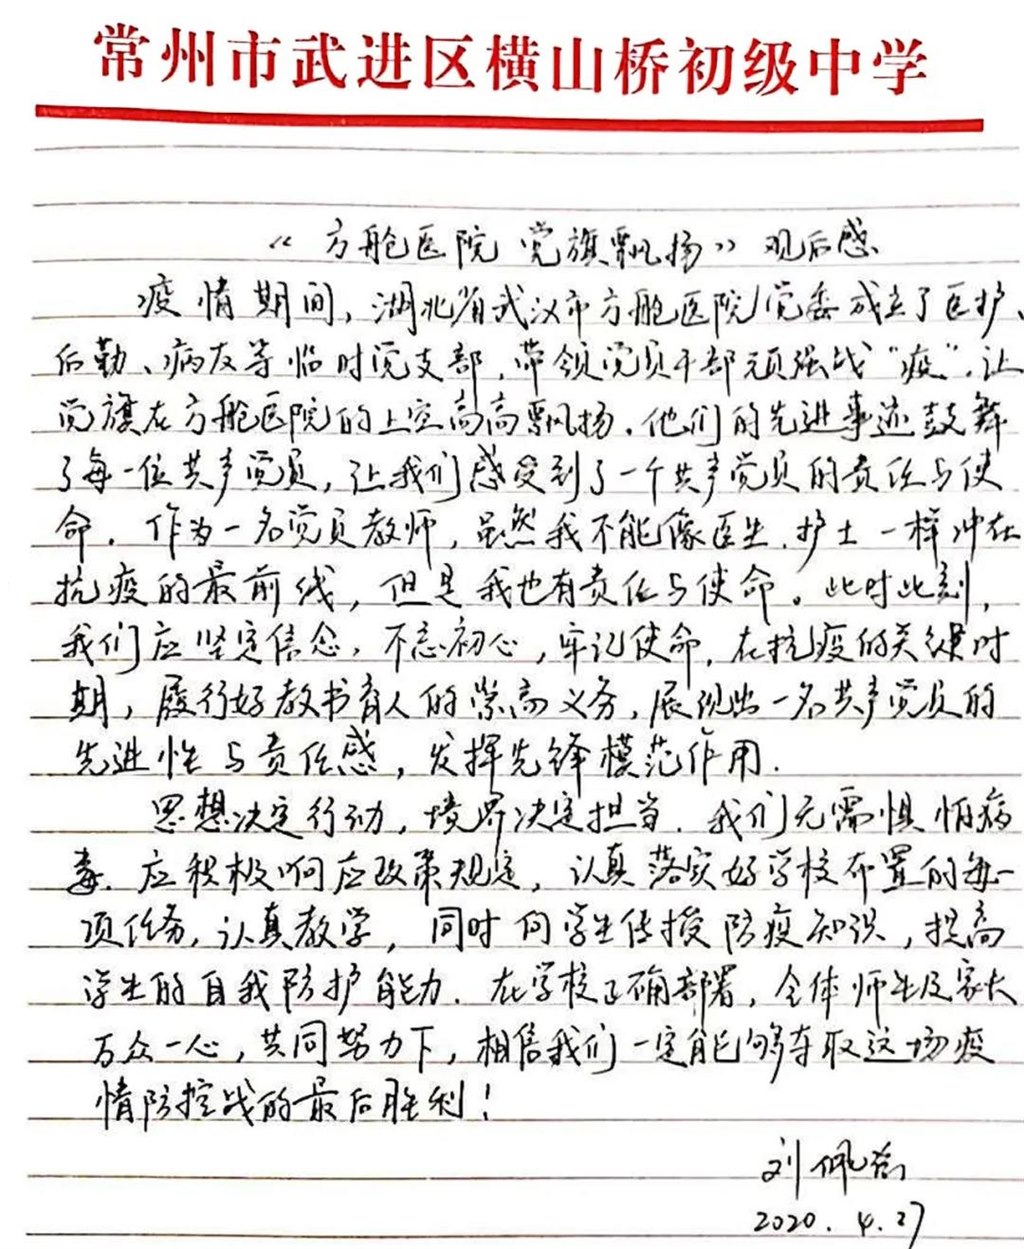 常州市武进区横山桥初级中学
《方舱医院 党旗飘扬》观后感
疫情期间，湖北省武汉市方舱医院党委成立了医护、
后勤、病友等临时党支部，带领党员干部顽强战“疫”，让
党旗在方舱医院的上空高高飘扬．他们的先进事迹鼓舞
了每一位共产党员，让我们感受到了一个共产党员的责任与使
命．作为一名党员教师，虽然我不能像医生、护士一样冲在
抗疫的最前线，但是我也有责任与使命。此时此刻，
我们应坚定信念，不忘初心，牢记使命，在抗疫的关键时
期，履行好教书育人的崇高义务，展现出一名共产党员的
先进性与责任感，发挥先锋模范作用．
思想决定行动，境界决定担当．我们无需惧怕病
毒．应积极响应政策规定，认真落实好学校布置的每一
项任务，认真教学，同时向学生传授防疫知识，提高
学生的自我防护能力．在学校正确部署，全体师生及家长
万众一心，共同努力下，相信我们一定能够夺取这场疫
情防控战的最后胜利！
刘佩
2020．4．27